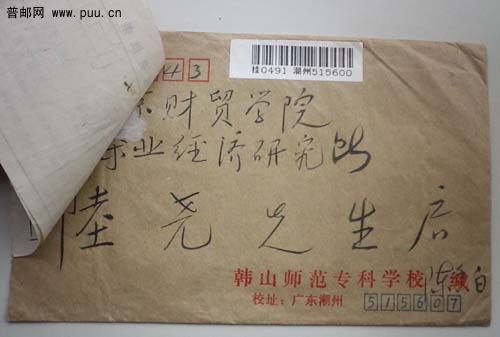 普邮网
www.puu.cn
43
挂0491 潮州515600
财贸学院
业经济研究所
陆尧先生启
韩山师范专科学校 陈
校址:广东潮州 515607